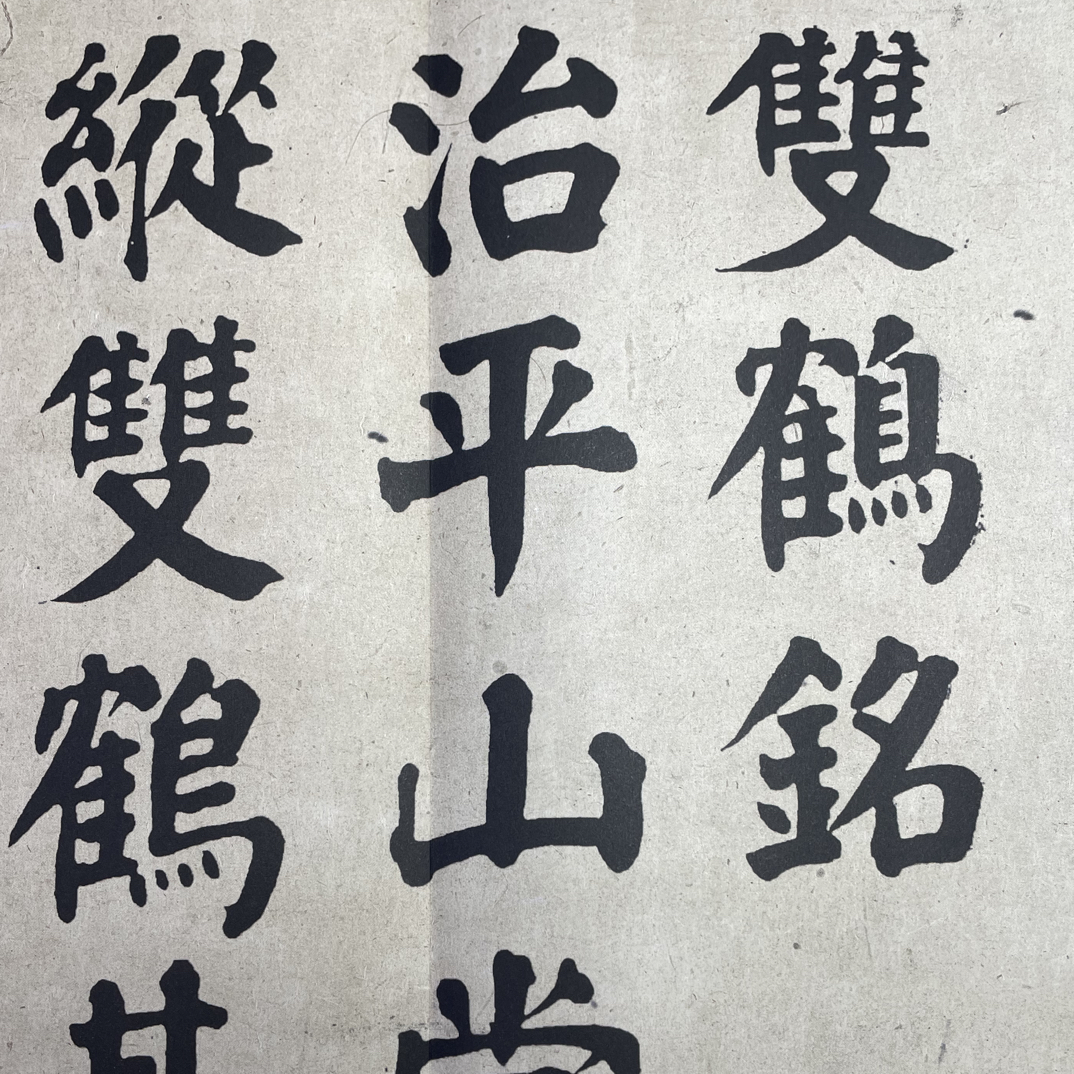 雙鶴銘
治平山
縱雙鶴